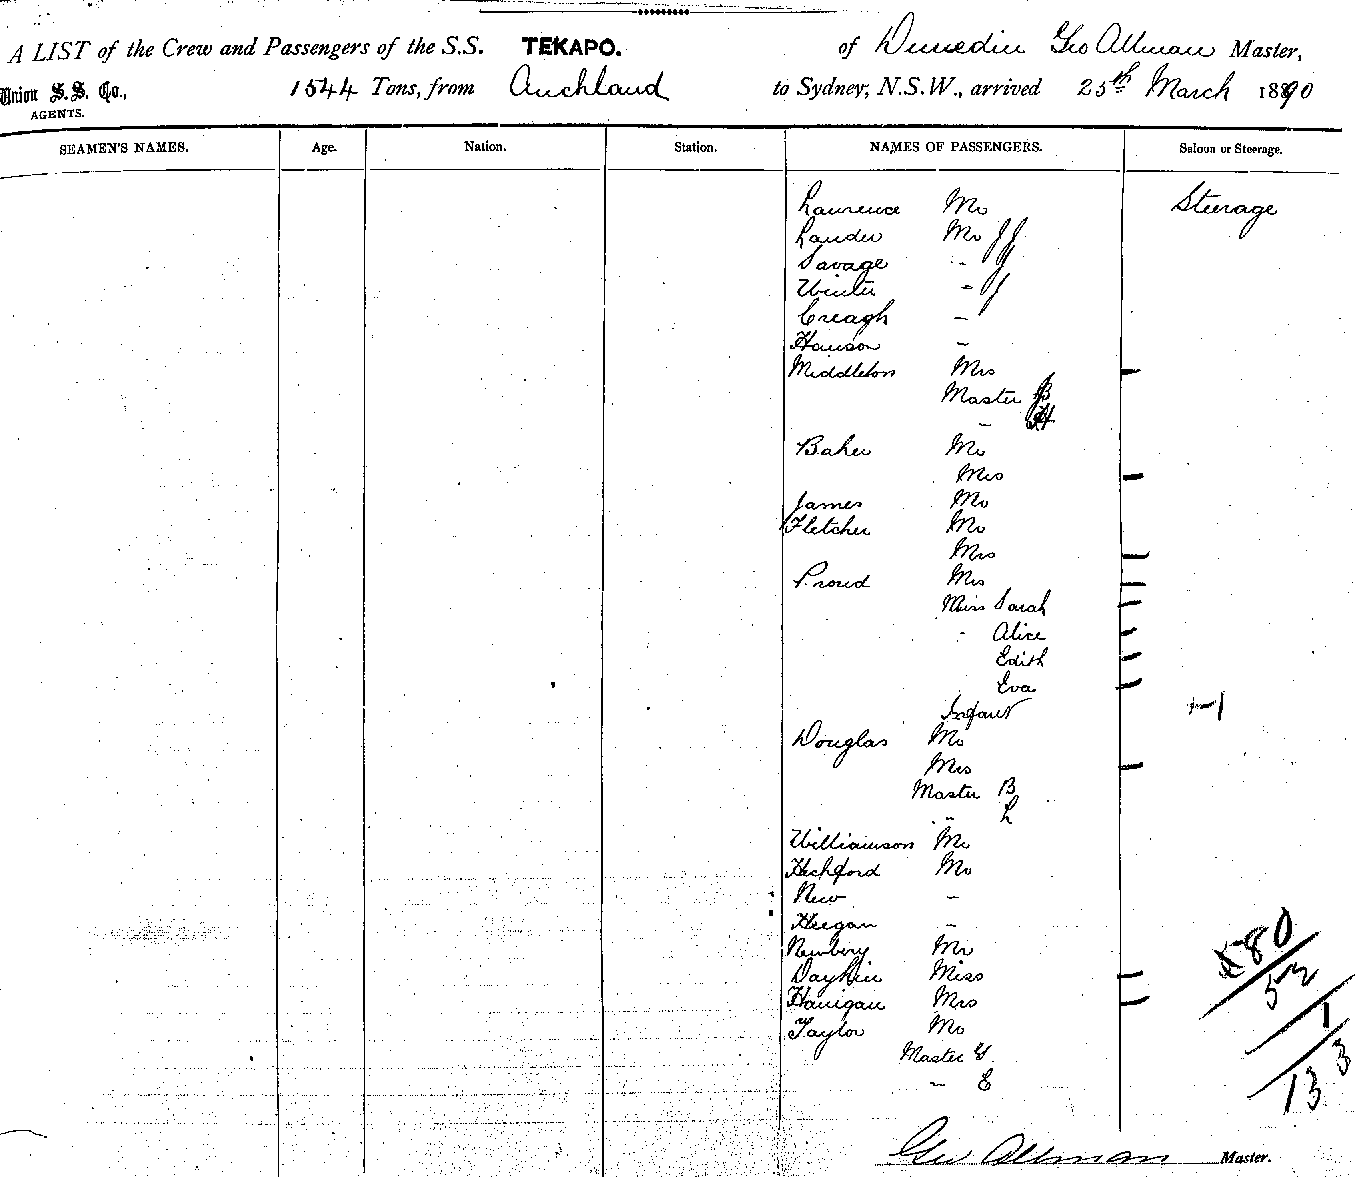 A LIST of the Crew and Passengers of the S.S. TEKAPO. of Dunedin Geo Allman Master,
Union S.S. Co., 1544 Tons, from Auckland to Sydney, N.S.W., arrived 25th March 1890
AGENTS.
SEAMEN'S NAMES. Age. Nation. Station. NAMES OF PASSENGERS. Saloon or Steerage.
Laurence Mr Steerage
Lauder Mr J J
Savage - J
Winter - J
Creagh -
Hanson -
Middleton Mrs
Master B
- H
Baker Mr
Mrs
James Mr
Fletcher Mr
Mrs
Proud Mrs
Miss Sarah
" Alice
Edith
Eva
Infant 1
Douglas Mr
Mrs
Master B
" L
Williamson Mr
Hechford Mr
New -
Keegan -
Newbery Mr
Miss
Hanigan Mrs
Taylor Mr
Master G
" E
80
52
1
133
Geo Allman Master.